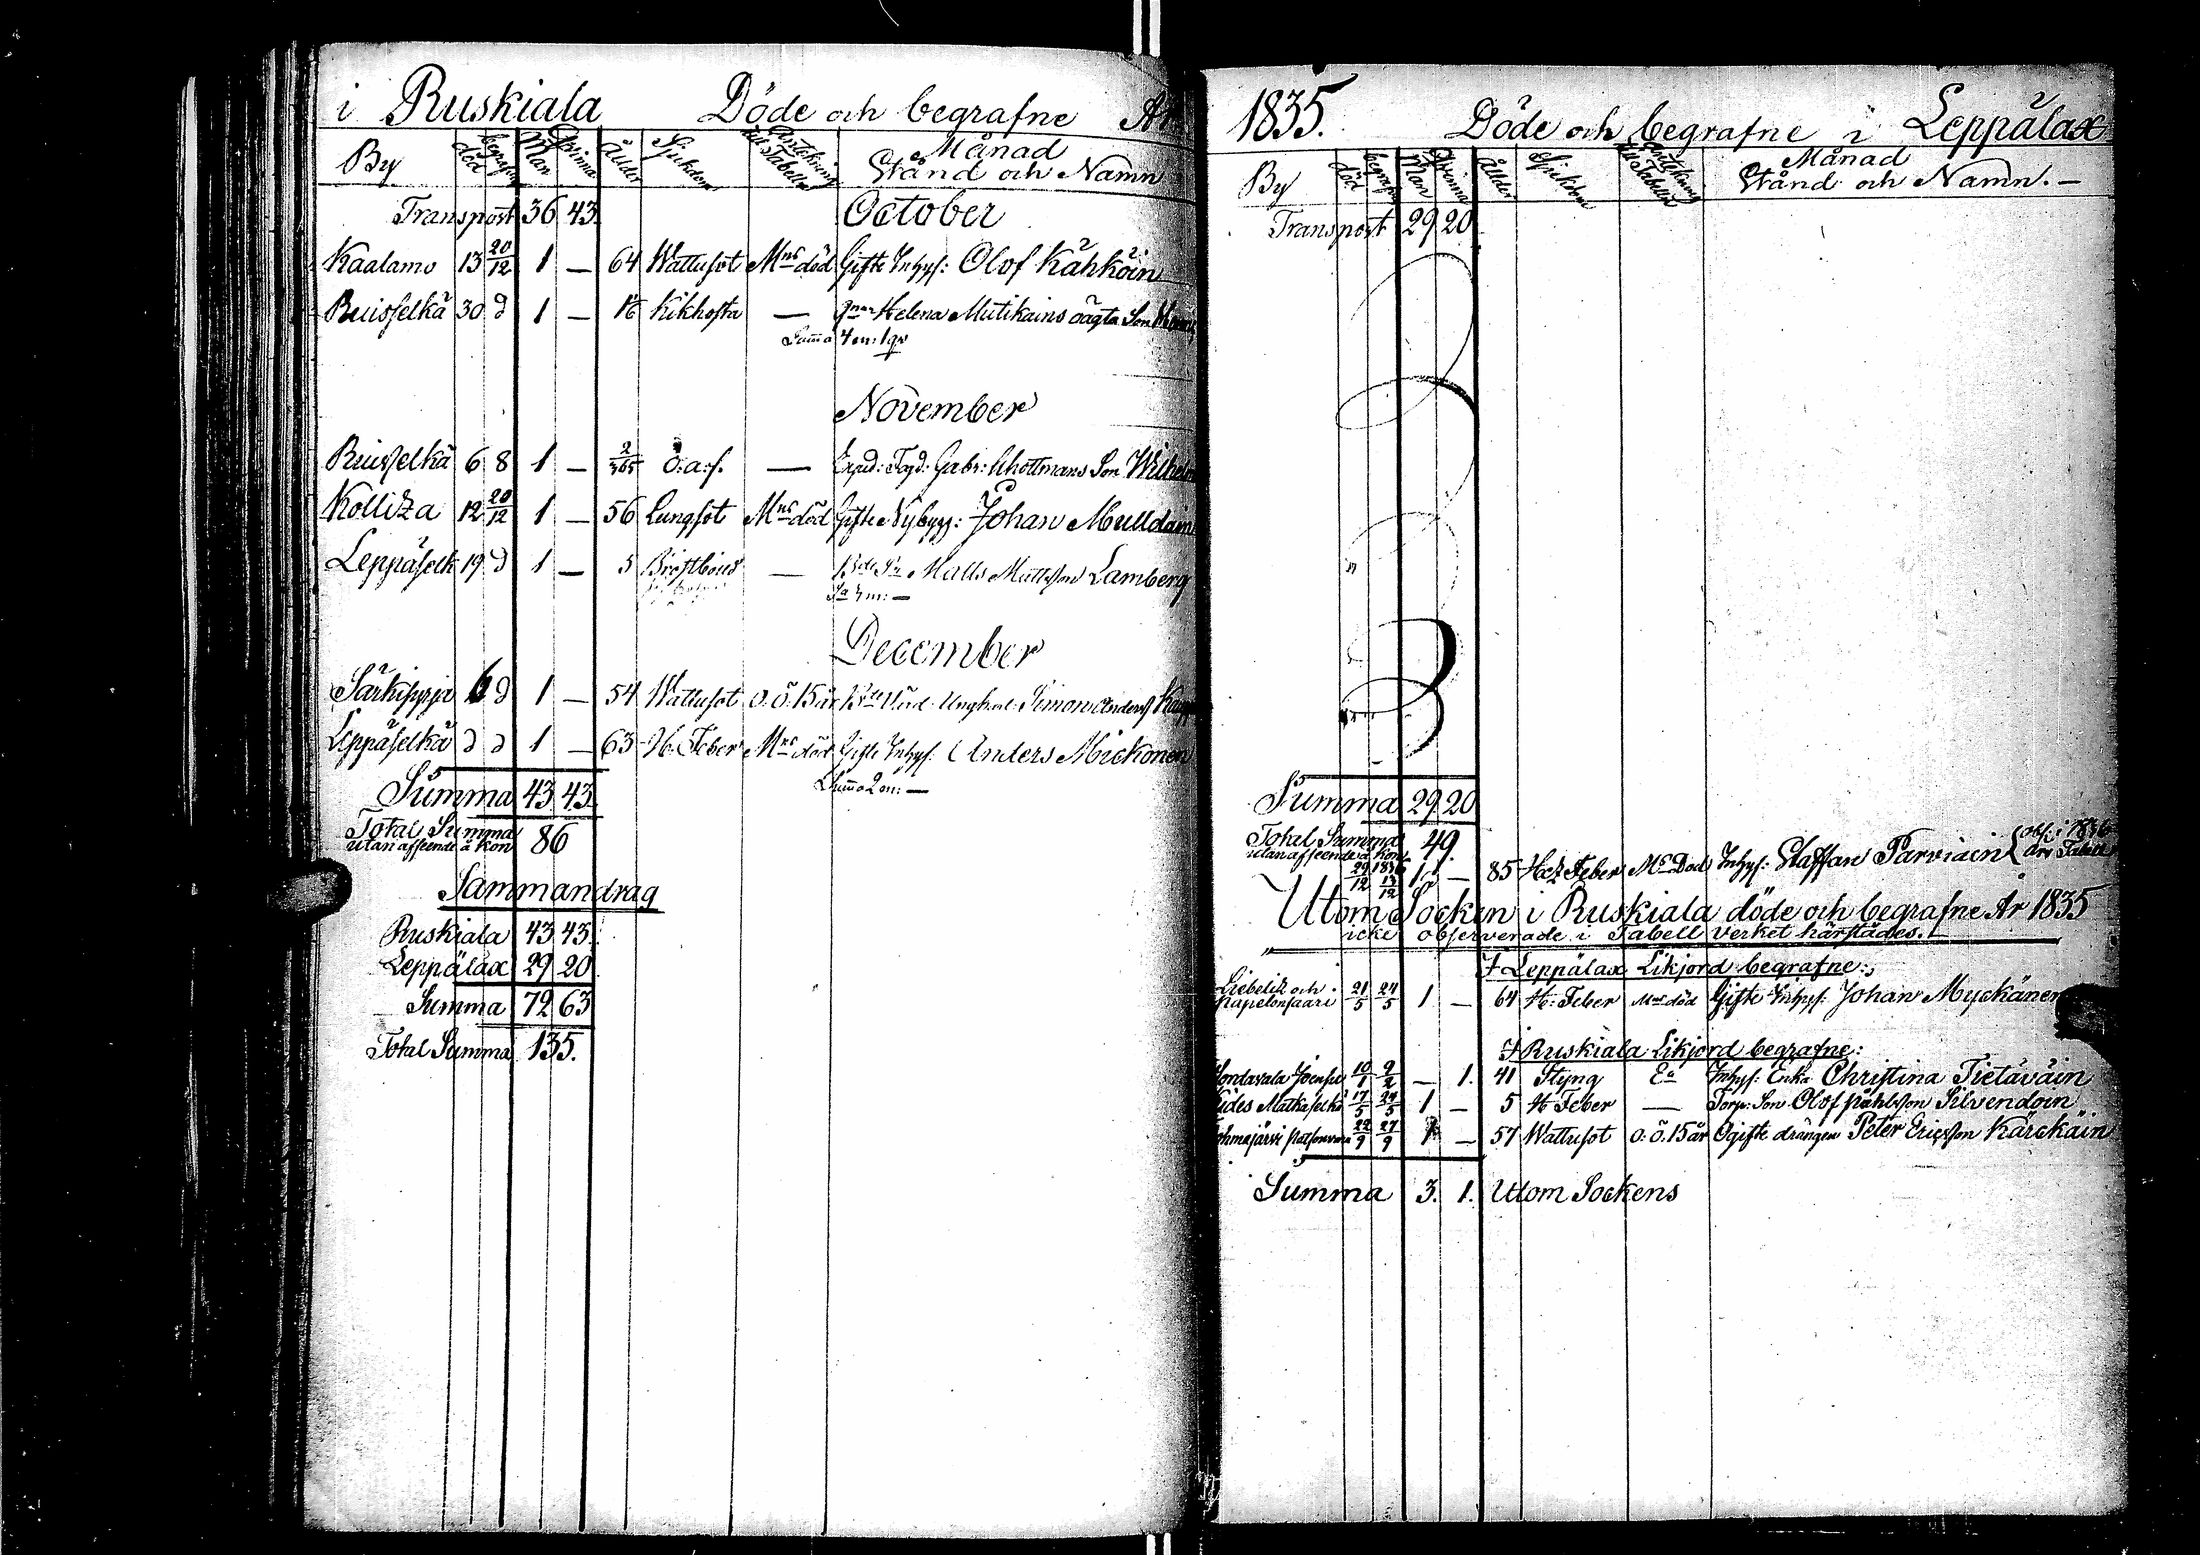 i Ruskiala Döde och begrafne År
By död begrafne Man Qvinna Ålder Sjukdom Antekning till Tabellen Månad Stånd och Namn
Transport 36 43 October
Kaalamo 13 20/12 1 — 64 Wattusot Mns död Gifte Inhys: Olof Kähköin
Ruisselkä 30 d 1 — Kikhosta — Helena Mutikains oägta Son
Summa 4 m: 1 qv
November
Ruisselkä 6 8 1 — 2/365 O: a: s. — Gabr: Son Wilhelm
Kolliza 12 20/12 1 — 56 Lungsot Mns död Gifte Nybygg: Johan Mulldain
Leppäselk 19 d 1 — 5 — Matts Mattsson Lamberg
Sa 3 m: —
December
Särkisyrja 6 d 1 — 54 Wattusot o. ö. 15 år Simon Anderss
Leppäselkä d d 1 — 63 H. Feber Mns död Gifte Inhys: Anders Mickonen
Summa 2 m: —
Summa 43 43
Total Summa 86
utan afseende å kön
Sammandrag
Ruskiala 43 43.
Leppälax 29 20
Summa 72 63
Total Summa 135.
1835. Döde och begrafne i Leppälax
By död begrafne Man Qvinna Ålder Sjukdom Antekning till Tabellen Månad Stånd och Namn. —
Transport 29 20
Summa 29 20
Total Summa 49.
utan afseende å kön
29/12 1836 13/12 1 — 85 Feber Död Inhys: Staffan Parviain obs: i 1836 års Tabell
Utom Socken i Ruskiala döde och begrafne År 1835
icke observerade i Tabell verket härstädes.
I Leppälax Likjord begrafne:
Liebelitz och 21/5 24/5 1 — 64 H: Feber Mns död Gifte Inhys: Johan Myckänen
I Ruskiala Likjord begrafne:
10/1 9/2 — 1. 41 Styng Ea Inhys: Enka Christina Tietäväin
Kides Matkaselkä 17/5 24/5 1 — 5 H Feber — Torp: Son Olof Påhlsson Silvendoin
Tohmajärvi 22/9 27/9 1 — 57 Wattusot o. ö. 15 år Ogifte drängen Peter Ericsson Kärckäin
Summa 3. 1. Utom Sockens